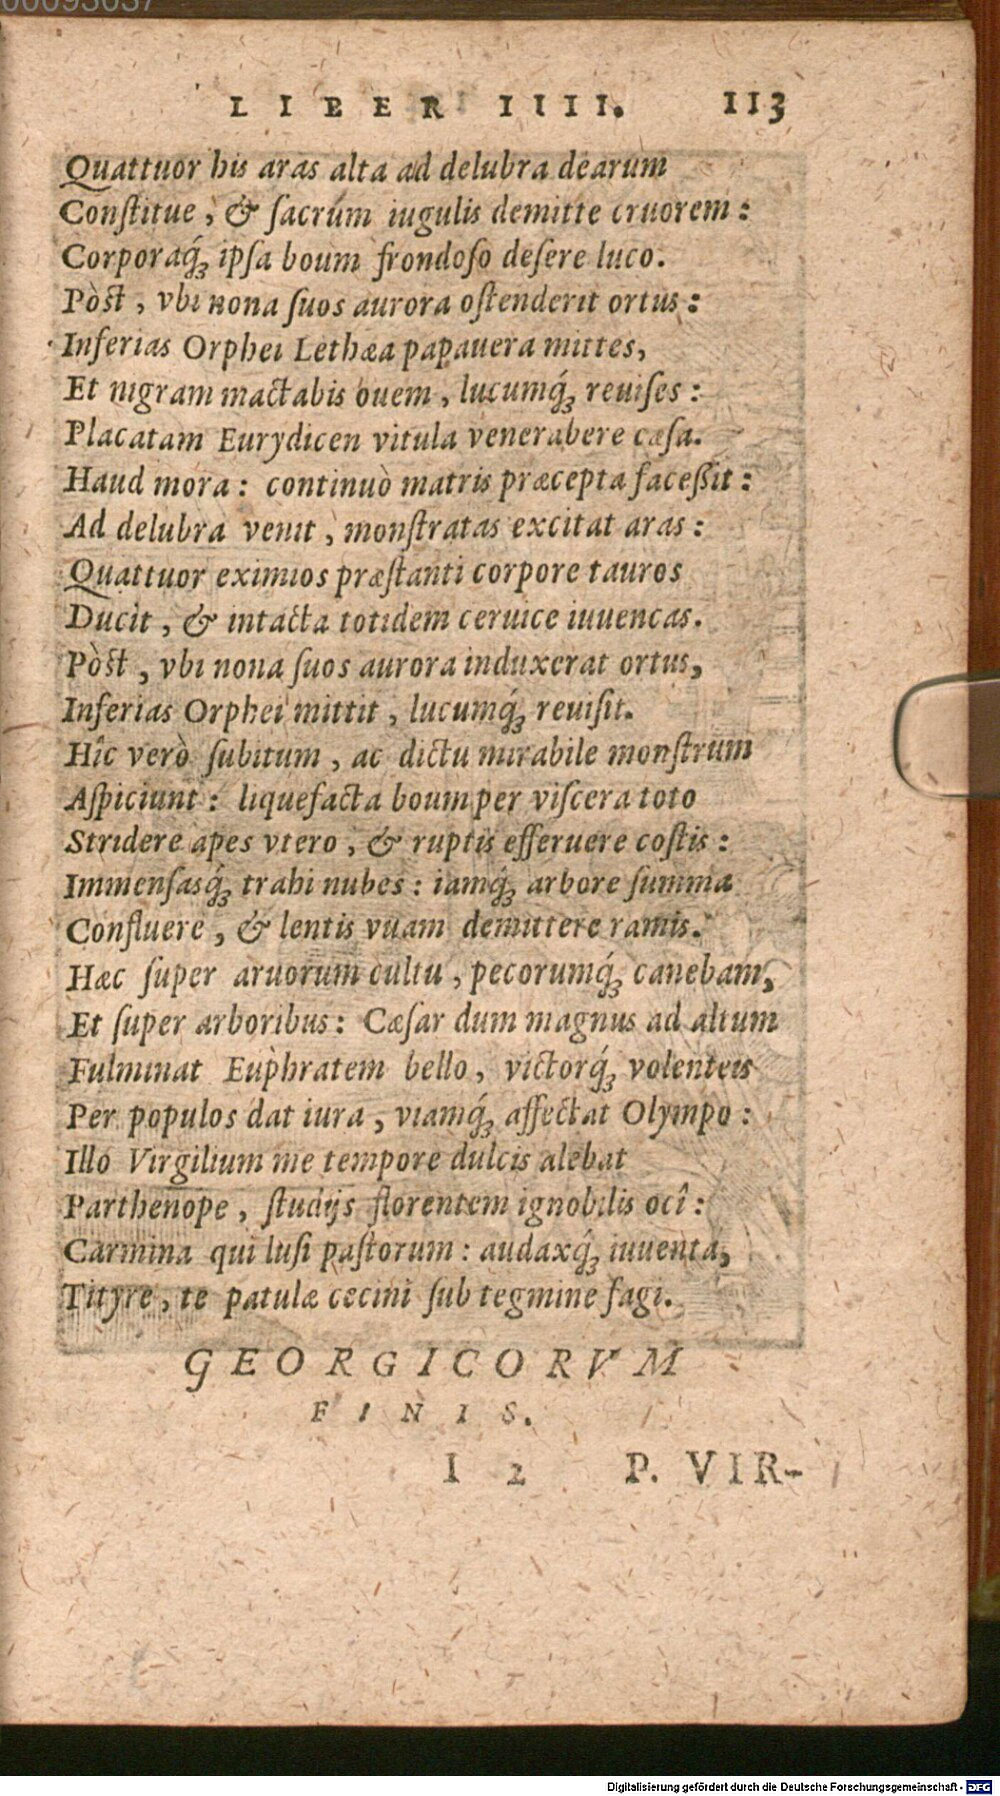 00093037
LIBER IIII. 113
Quattuor his aras alta ad delubra dearum
Constitue, & sacrúm iugulis demitte cruorem:
Corporaq́; ipsa boum frondoso desere luco.
Pòst, vbi nona suos aurora ostenderit ortus:
Inferias Orphei Lethæa papauera mittes,
Et nigram mactabis ouem, lucumq́; reuises:
Placatam Eurydicen vitula venerabere cæsa.
Haud mora: continuò matris præcepta facessit:
Ad delubra venit, monstratas excitat aras:
Quattuor eximios præstanti corpore tauros
Ducit, & intacta totidem ceruice iuuencas.
Pòst, vbi nona suos aurora induxerat ortus,
Inferias Orphei mittit, lucumq́; reuisit.
Hîc verò subitum, ac dictu mirabile monstrum
Aspiciunt: liquefacta boum per viscera toto
Stridere apes vtero, & ruptis efferuere costis:
Immensasq́; trahi nubes: iamq́; arbore summa
Confluere, & lentis vuam demittere ramis.
Hæc super aruorum cultu, pecorumq́; canebam,
Et super arboribus: Cæsar dum magnus ad altum
Fulminat Euphratem bello, victorq́; volenteis
Per populos dat iura, viamq́; affectat Olympo:
Illo Virgilium me tempore dulcis alebat
Parthenope, studijs florentem ignobilis ocî:
Carmina qui lusi pastorum: audaxq́; iuuenta,
Tityre, te patulæ cecini sub tegmine fagi.
GEORGICORVM
FINIS.
I 2 P. VIR-
Digitalisierung gefördert durch die Deutsche Forschungsgemeinschaft - DFG